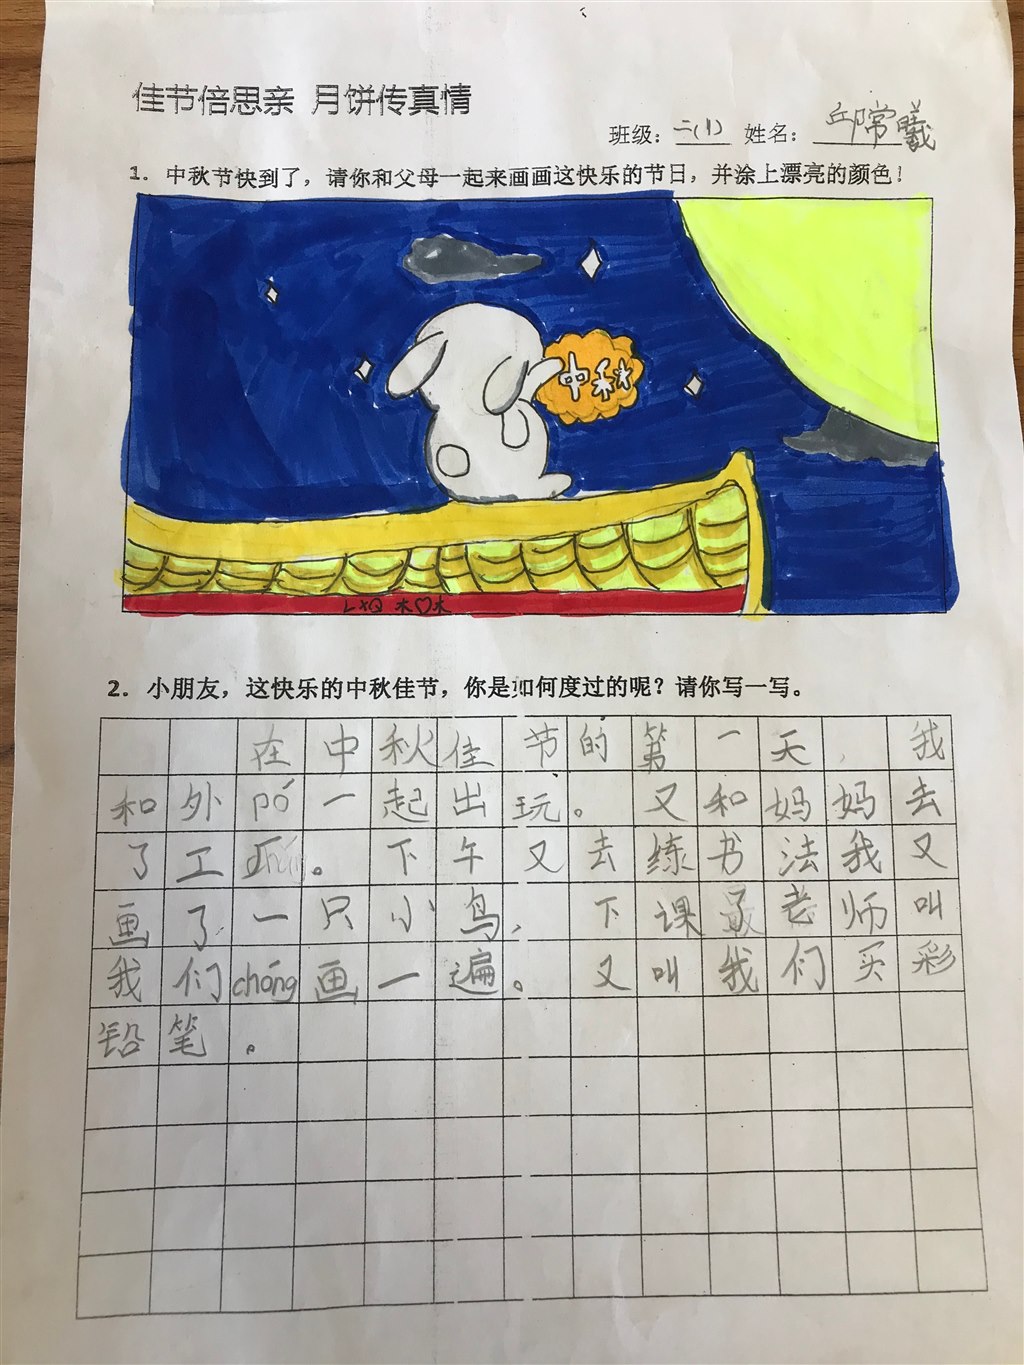 佳节倍思亲 月饼传真情
班级：二(1) 姓名：邱常曦
1. 中秋节快到了，请你和父母一起来画画这快乐的节日，并涂上漂亮的颜色！
中秋
LXQ 木♡木
2. 小朋友，这快乐的中秋佳节，你是如何度过的呢？请你写一写。
在中秋佳节的第一天，我
和外pó一起出玩。又和妈妈去
了工。下午又去练书法我又
画了一只小鸟，下课最老师叫
我们chóng画一遍。又叫我们买彩
铅笔。